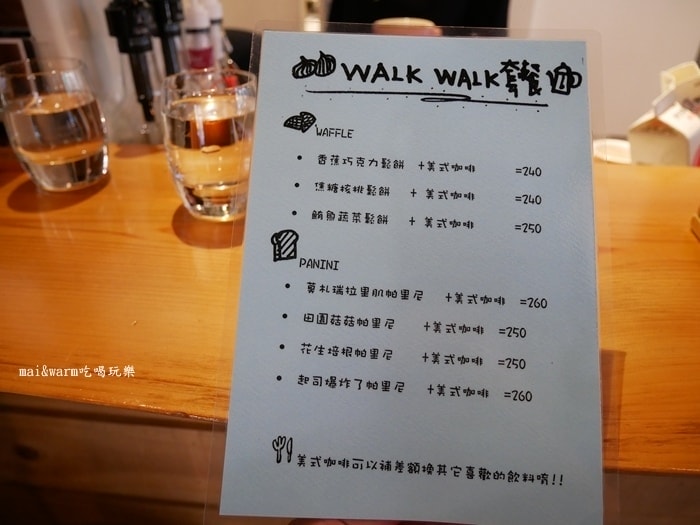 WALK WALK套餐
WAFFLE
• 香蕉巧克力鬆餅 +美式咖啡 =240
• 焦糖核桃鬆餅 + 美式咖啡 =240
• 鮪魚蔬菜鬆餅 + 美式咖啡 =250
PANINI
• 莫札瑞拉里肌帕里尼 +美式咖啡 =260
• 田園菇菇帕里尼 +美式咖啡 =250
• 花生培根帕里尼 +美式咖啡 =250
• 起司爆炸了帕里尼 +美式咖啡 =260
美式咖啡可以補差額換其它喜歡的飲料唷!!
mai&warm吃喝玩樂